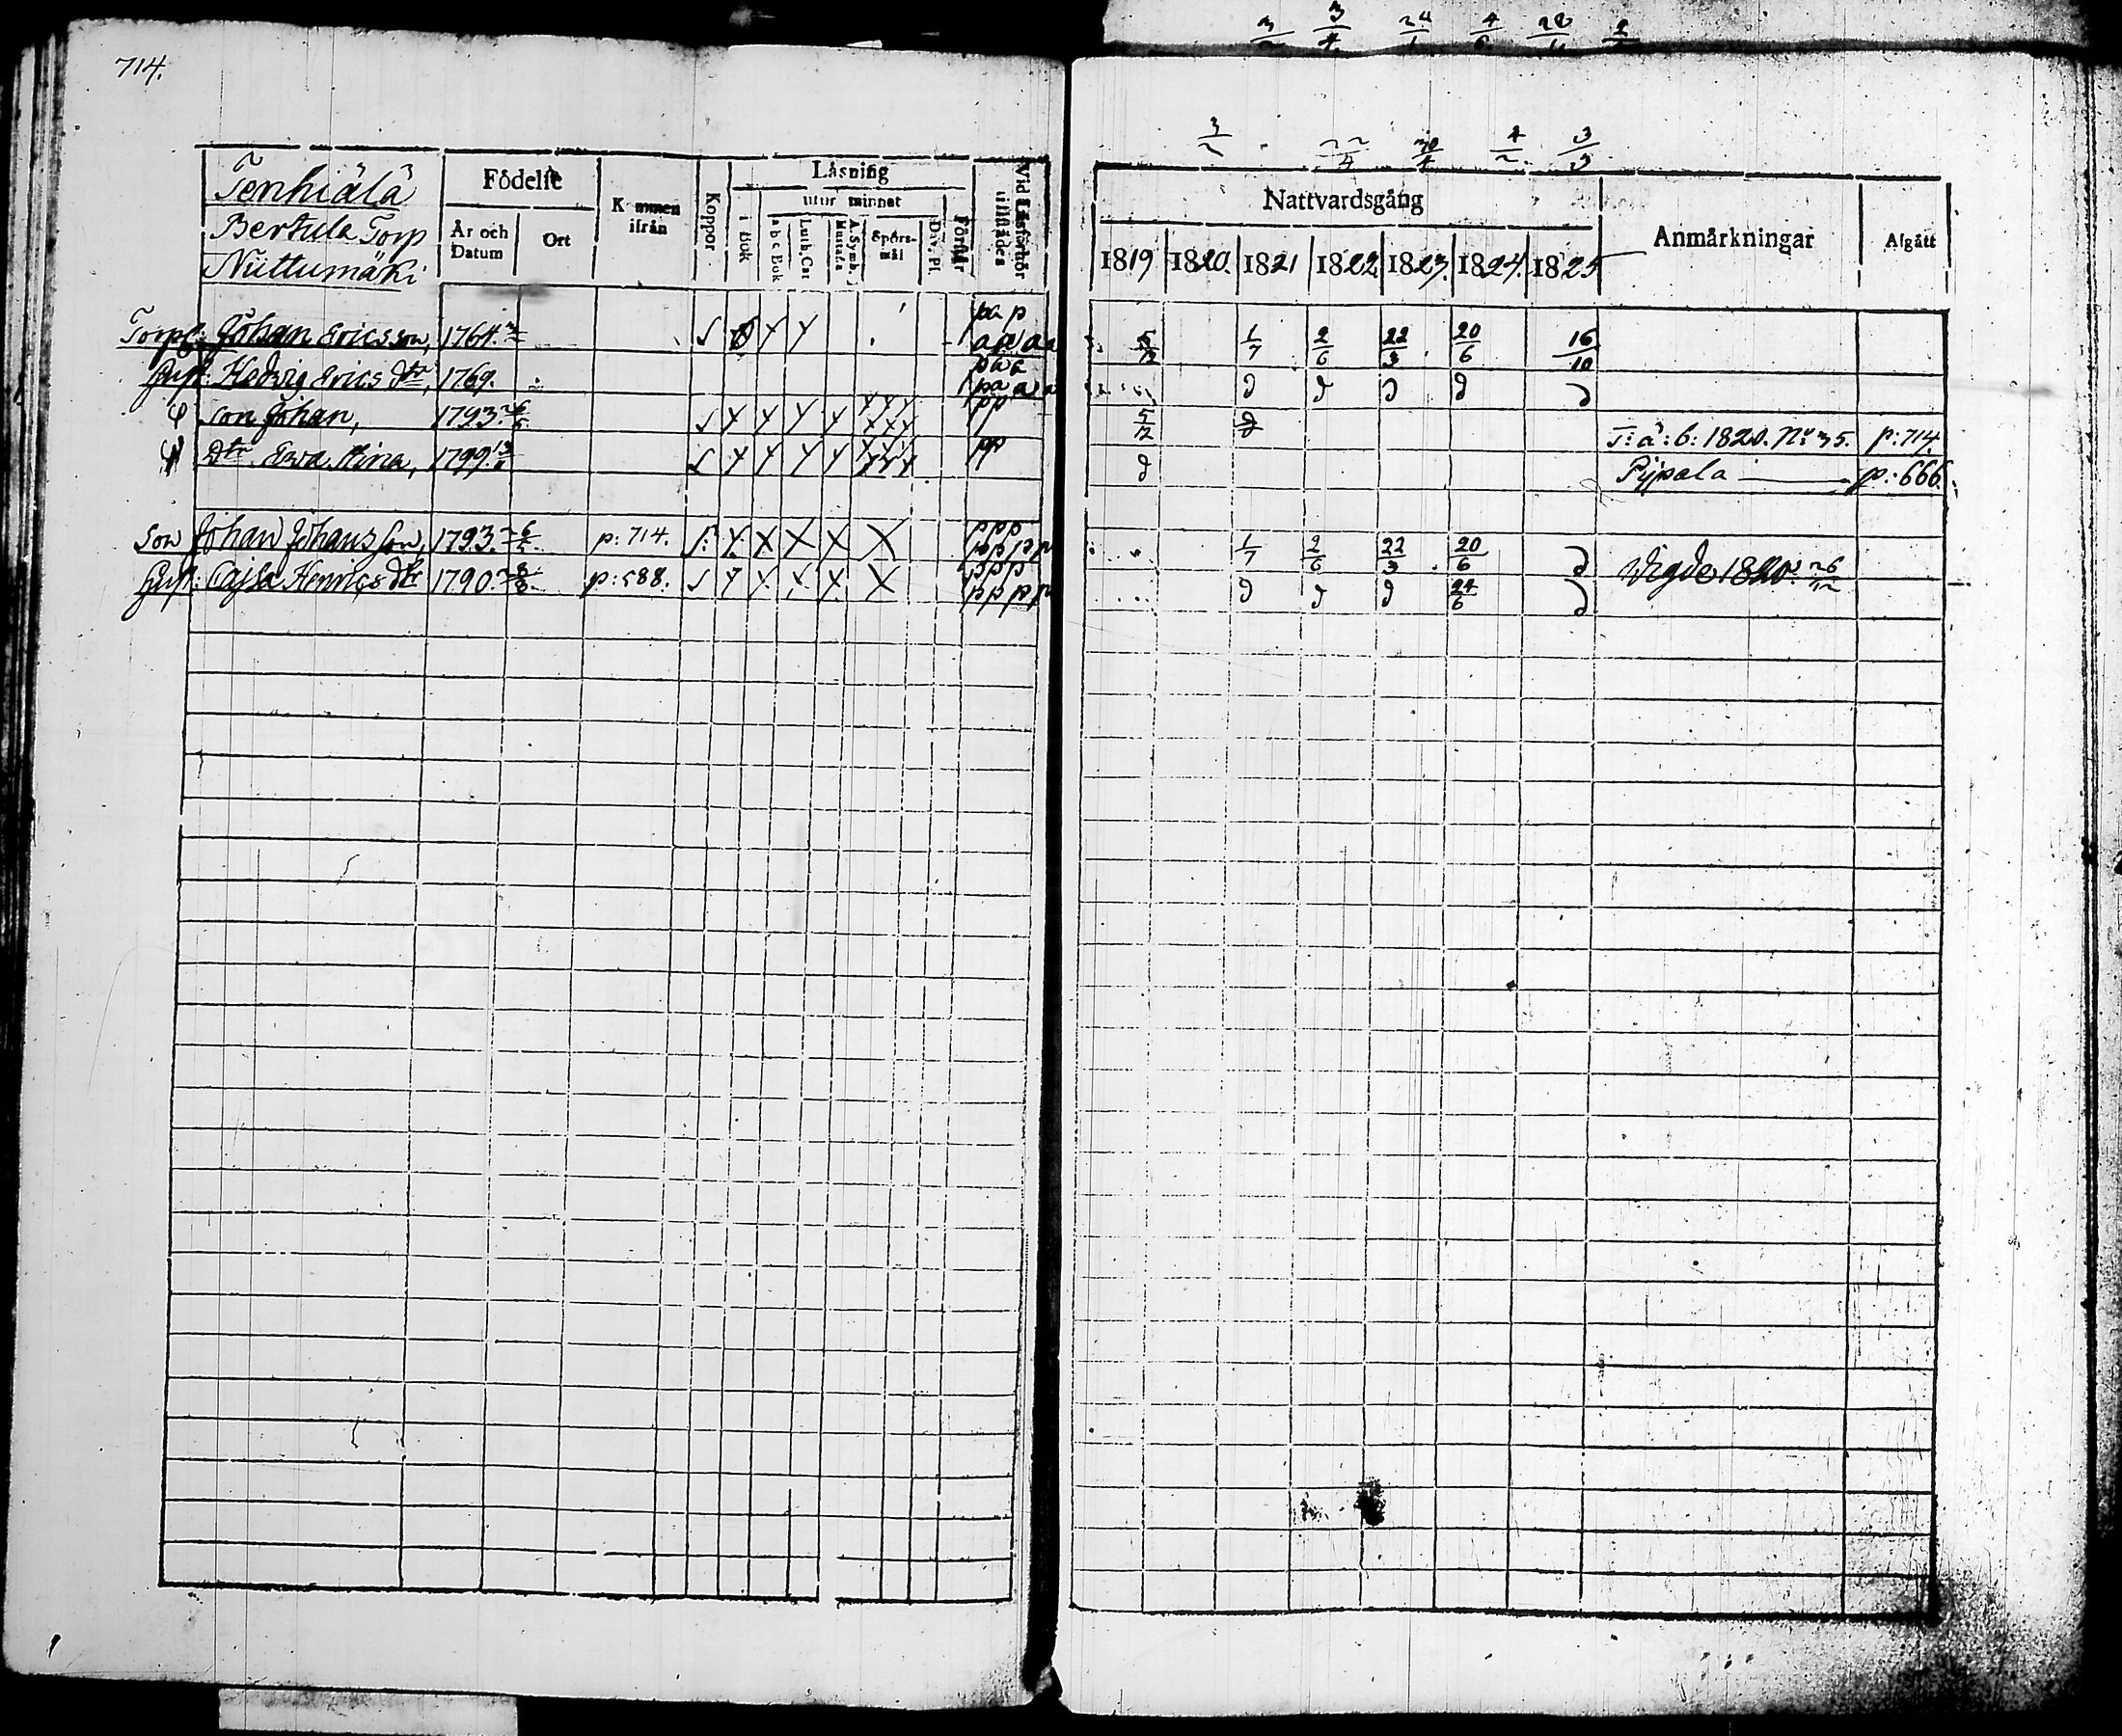 714.
Tenhiälä
Bertula Torp
Nuttumäki
Födelse
År och Datum
Ort
Kommen ifrån
Koppor
Läsning
i Bok
utur minnet
a b c Bok
Luth. Cat
A. Symb. Hustafla
Spörsmål
Dav. Ps.
Förstår
Vid Läsförhör tillstädes
Nattvardsgång
1819 1820. 1821 1822 1823. 1824. 1825
Anmärkningar
Afgått
Torp: Johan Ericsson, 1764. 5/12 1/7 2/6 22/3 20/6 16/10
Hust: Hedvig Erics dtr, 1769.
Son Johan, 1793. 26/5 5/12 T: å: b: 1820. No 35. p: 714.
Dtr Ewa Stina, 1799. Pijpala p: 666.
Son Johan Johansson, 1793. 26/5 p: 714. 1/7 2/6 22/3 20/6 Vigde 1820 26/12
Hust: Cajsa Henrics dtr 1790. p: 588. 24/6